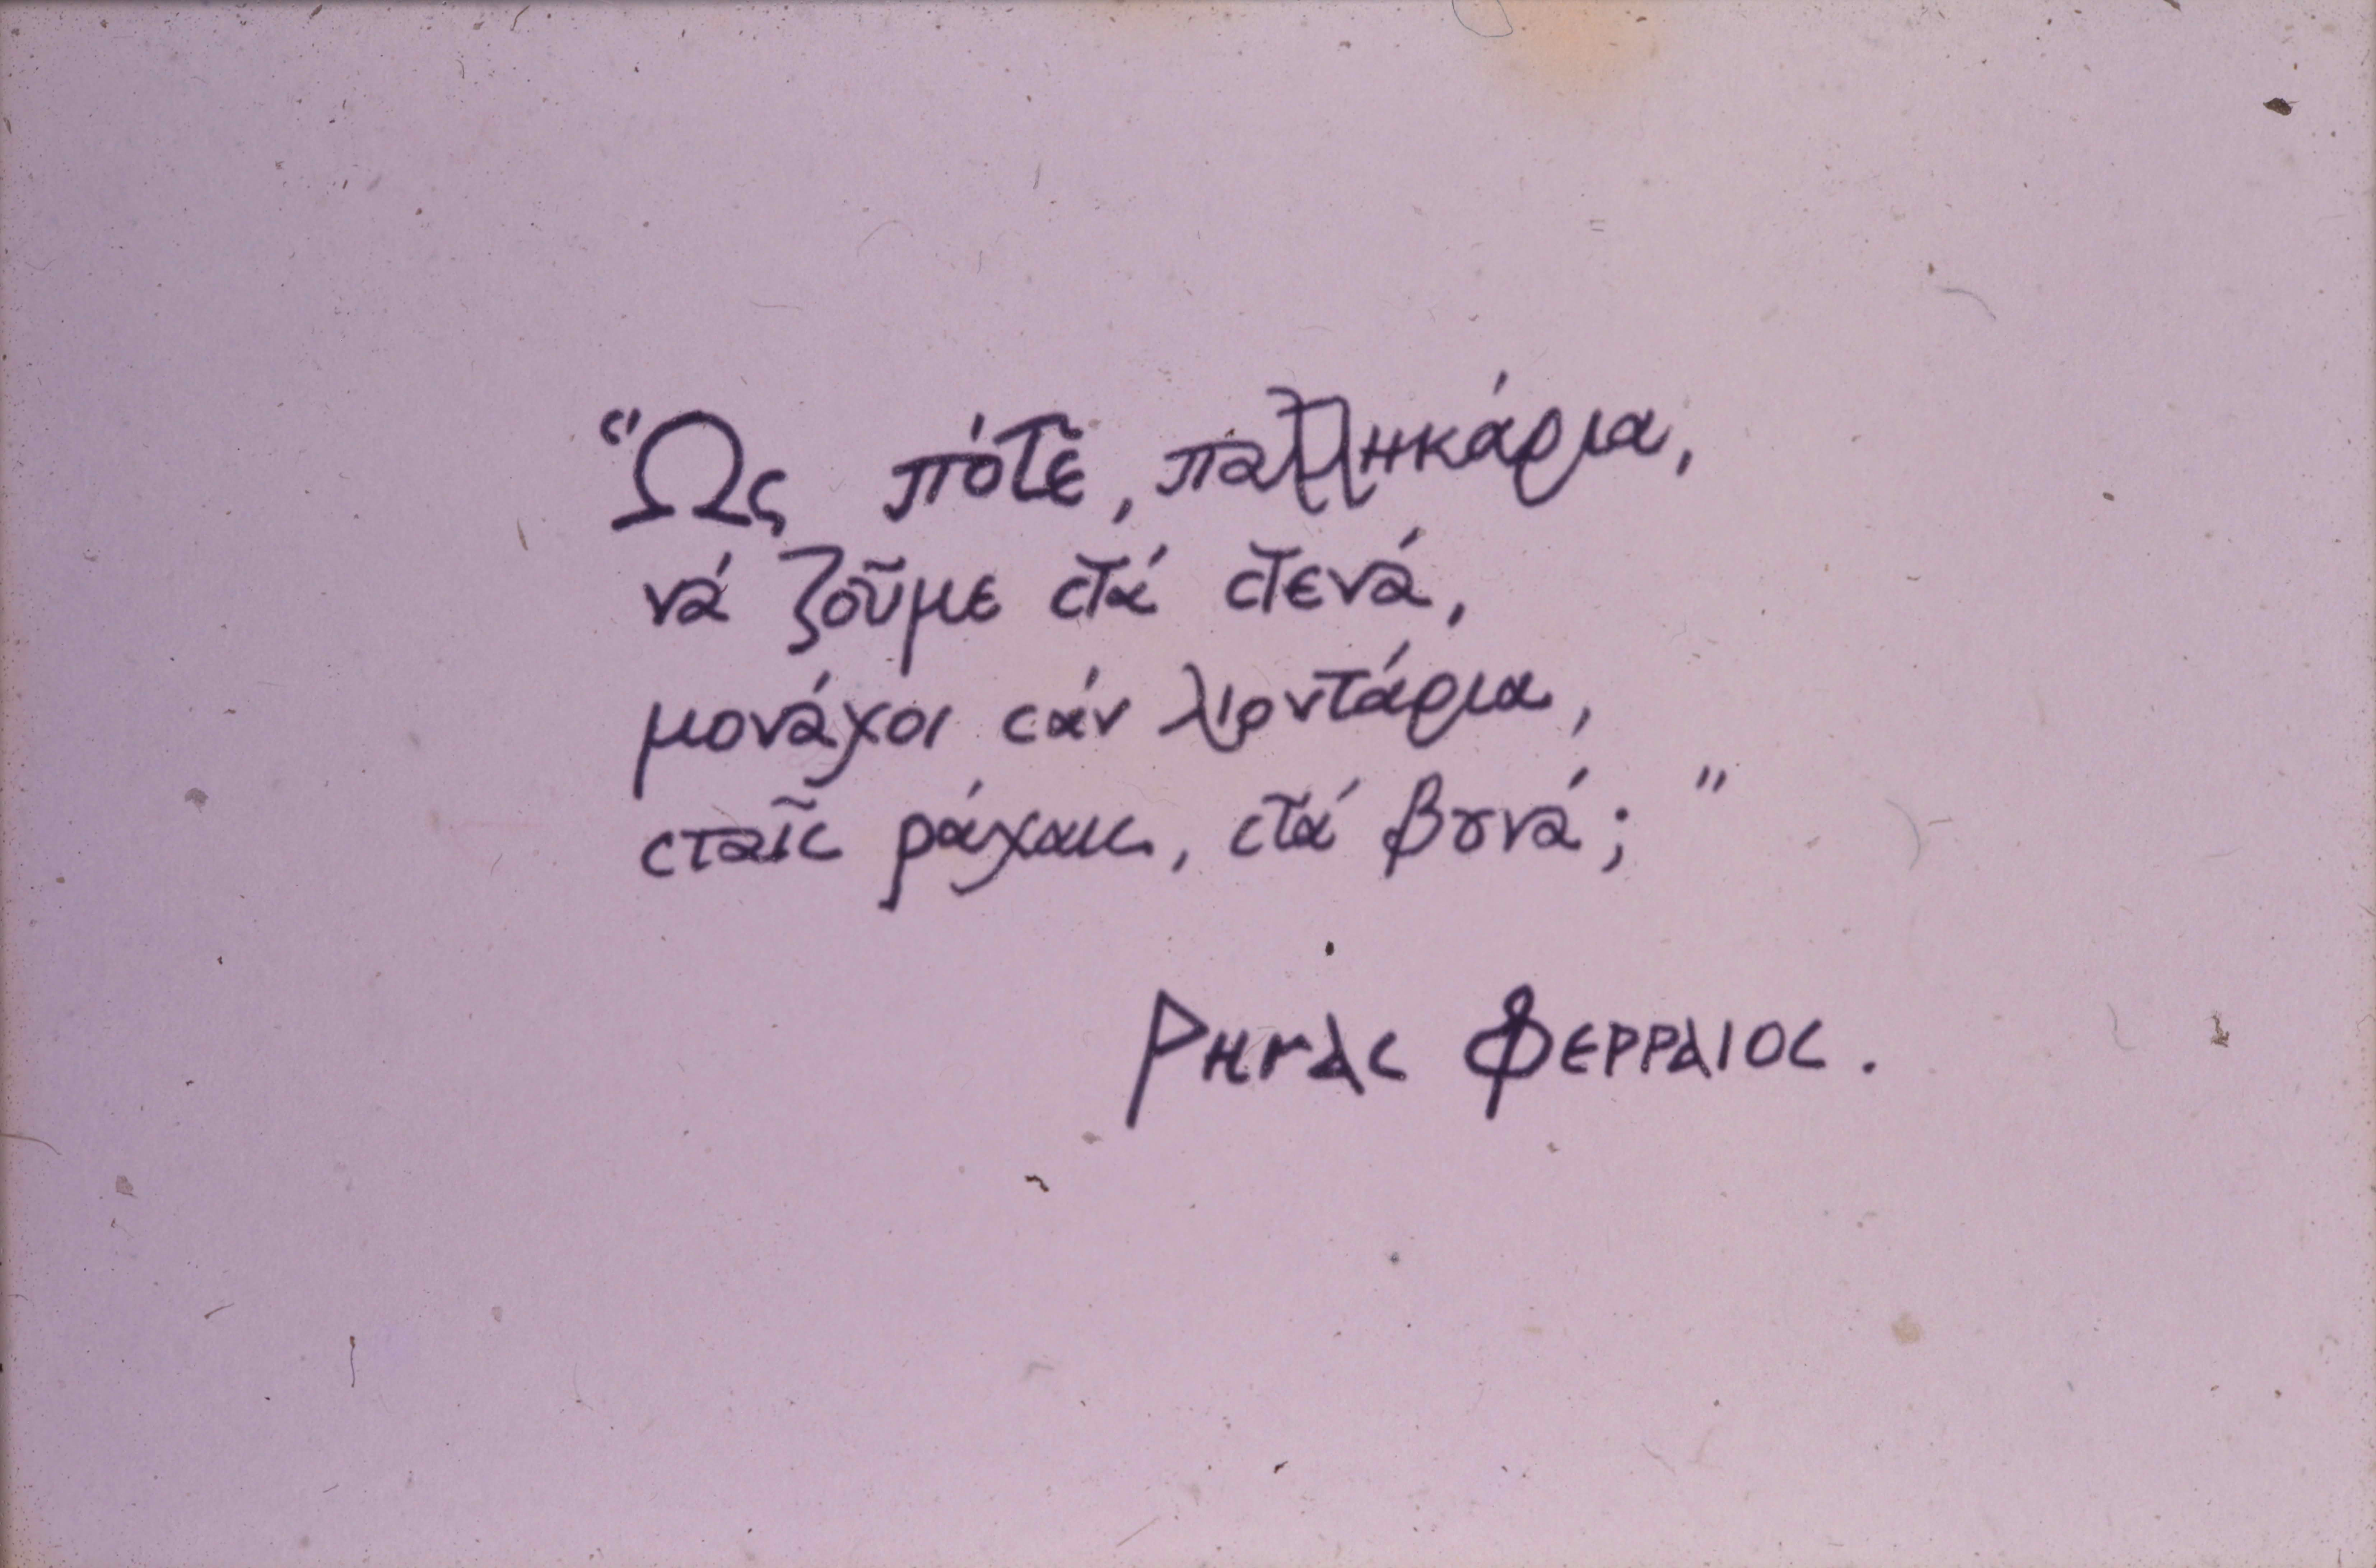 “Ως πότε, παλληκάρια,
νά ζοῦμε στά στενά,
μονάχοι σάν λιοντάρια,
σταῖς ράχαις, στά βουνά;”
Ρηγας Φερραιος.